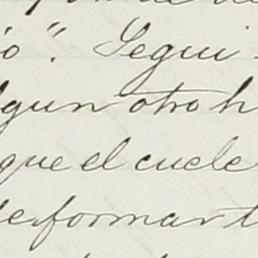 ó". Segui
lgun otro h
que el cuele
de formar t